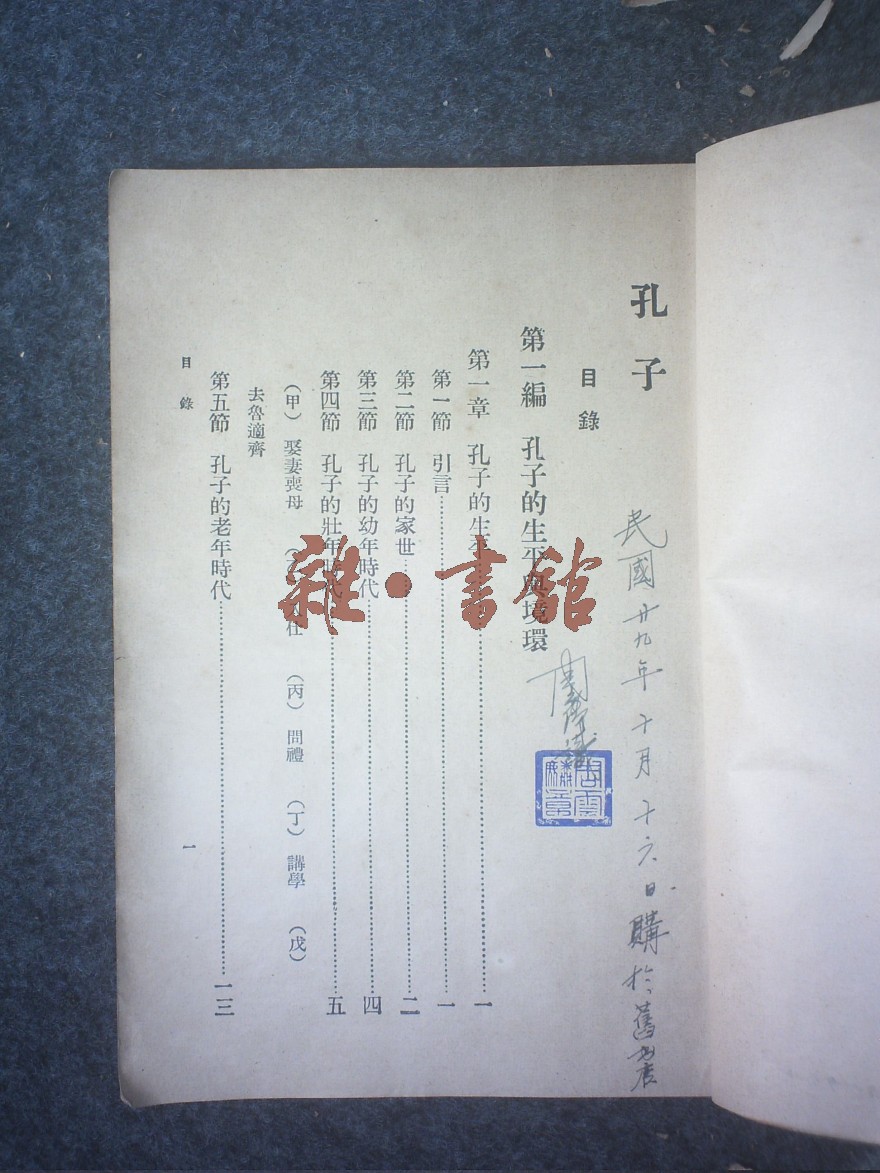 孔子
民國廿九年十月十六日購於舊書店
目錄
第一編 孔子的生平與境環
第一章 孔子的生平……一
第一節 引言……一
第二節 孔子的家世……二
第三節 孔子的幼年時代……四
第四節 孔子的壯年時代……五
（甲）娶妻喪母 仕 （丙）問禮 （丁）講學 （戊）
去魯適齊
第五節 孔子的老年時代……一三
目錄
一
雜·書館